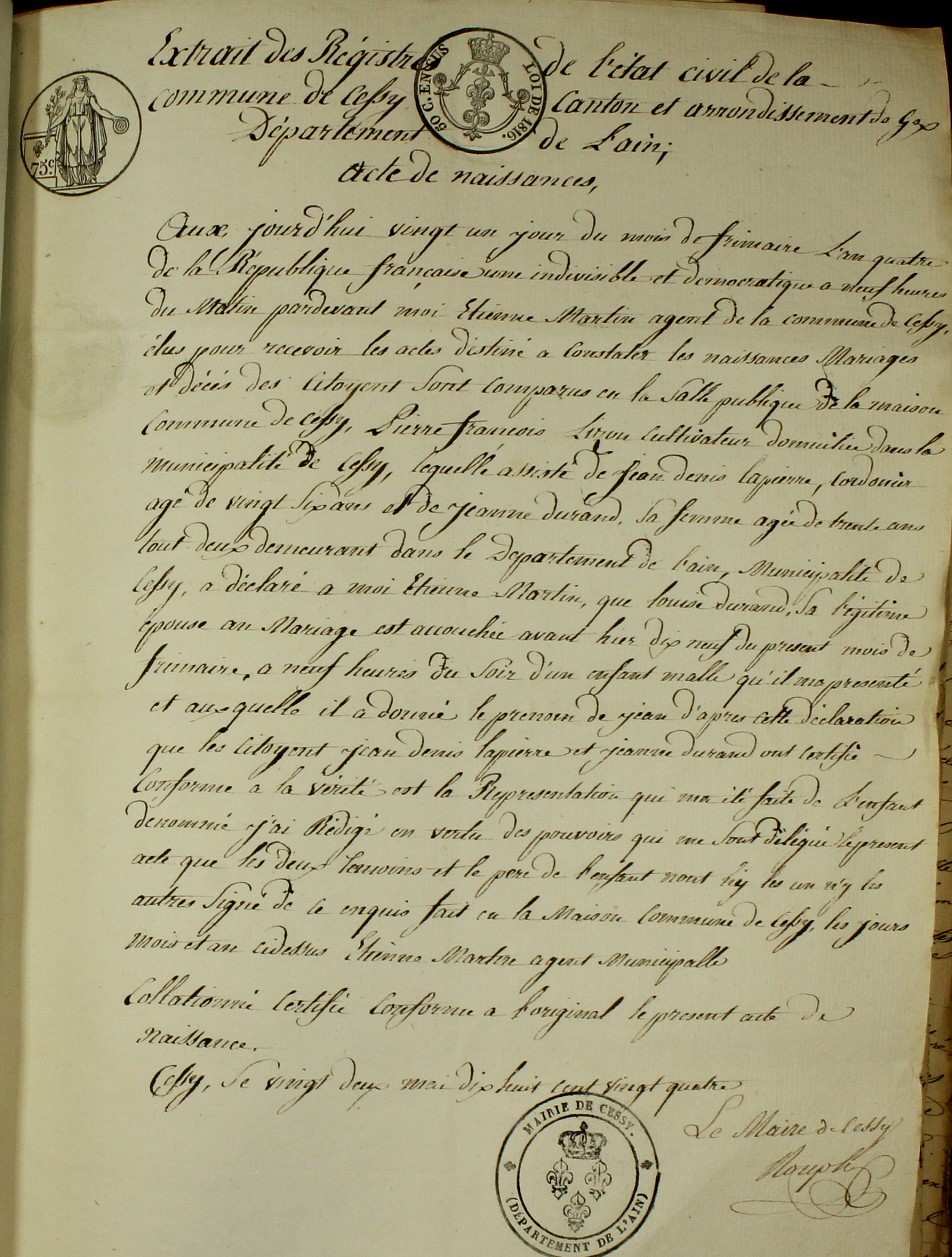 Extrait des Régistres de l'état civil de la
commune de Cessy Canton et arrondissement de Gex
Département de L'ain;
acte de naissances,
50 C. EN SUS
LOI DE 1816.
75c
Aux jourd'hui vingt un jour du mois de frimaire L'an quatre
de la République française une indivisible et démocratique a neuf heures
du Matin pardevant moi Etienne Martin agent de la commune de Cessy,
élus pour recevoir les actes destiné a Constater les naissances Mariages
et décés des Citoyent Sont Comparus en la Salle publique de la maison
Commune de Cessy, Pierre francois cultivateur domicilié dans la
municipalité de Cessy, lequelle assisté de Jean denis lapierre, Cordonier
agé de vingt Six ans et de jeanne durand, Sa femme agée de trente ans
tout deux demeurant dans le Departement de l'ain, Municipalité de
Cessy, a déclaré a moi Etienne Martin, que louise durand, Sa légitime
épouse an Mariage est accouchée avant hier dix neuf du present mois de
frimaire, a neuf heures du Soir d'un enfant malle qu'il ma presenté
et au quelle il a donné le prenom de jean d'apres cette déclaration
que les Citoyent jean denis lapierre et jeanne durand ont Certifié
Conforme a la vérité est la Représentation qui ma été faite de L'enfant
dénommé j'ai Rédigé en vertu des pouvoirs qui me Sont délégué le present
acte que les deux temoins et le pere de l'enfant nont n'y les un n'y les
autres Signé de ce enquis fait en la Maison Commune de Cessy, les jours
mois et an cidessus Etienne Martin agent Municipalle
Collationné Certifié Conforme a l'original le present acte de
Naissance.
Cessy, Le vingt deux mai dix huit cent vingt quatre
Le Maire de Cessy
MAIRIE DE CESSY.
(DÉPARTEMENT DE L'AIN)